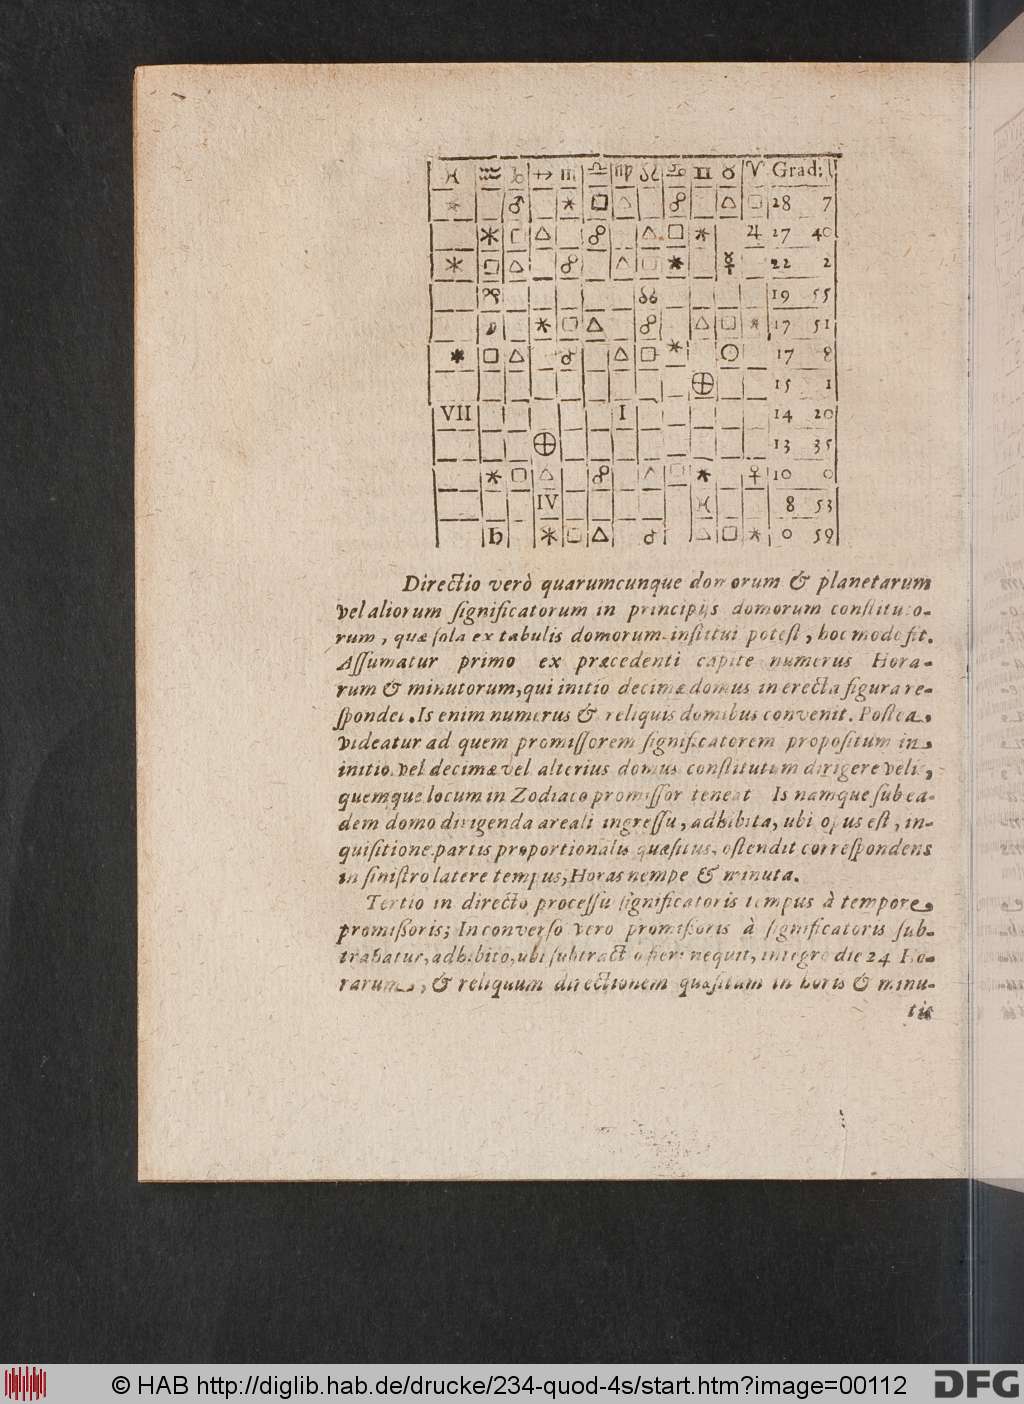 ♓ ♒ ♑ ♐ ♏ ♎ ♍ ♌ ♋ ♊ ♉ ♈ Grad:
⚹ ♂ ⚹ □ △ ☍ △ □ 28 7
⚹ □ △ ☍ △ □ ⚹ ♃ 27 40
⚹ □ △ ☍ △ □ ⚹ ☿ 22 2
☋ ☊ 19 55
☽ ⚹ □ △ ☍ △ □ ⚹ 17 51
⚹ □ △ ☍ △ □ ⚹ ☉ 17 8
⊕ 15 1
VII I 14 20
⊕ 13 35
⚹ □ △ ☍ △ □ ⚹ ♀ 10 0
IV ♓ 8 53
♄ ⚹ □ △ ☍ △ □ ⚹ 0 59
Directio verò quarumcunque domorum & planetarum
vel aliorum ſignificatorum in principijs domorum conſtituto-
rum, quæ ſola ex tabulis domorum inſtitui poteſt, hoc modo fit.
Aſſumatur primo ex præcedenti capite numerus Hora-
rum & minutorum, qui initio decimæ domus in erecta figura re-
ſpondet. Is enim numerus & reliquis domibus convenit. Poſtea,
videatur ad quem promiſſorem ſignificatorem propoſitum in,
initio vel decimæ vel alterius domus conſtitutum dirigere velis,
quemque locum in Zodiaco promiſſor teneat Is namque ſub ea-
dem domo dirigenda areali ingreſſu, adhibita, ubi opus eſt, in-
quiſitione partis proportionalis quæſitus, oſtendit correſpondens
in ſiniſtro latere tempus, Horas nempe & minuta.
Tertio in directo proceſſu ſignificatoris tempus à tempore
promiſſoris; In converſo vero promiſſoris à ſignificatoris ſub-
trahatur, adhibito, ubi ſubtractio fieri nequit, integro die 24 Ho-
rarum, & reliquum directionem quæſitam in horis & minu-
tis
© HAB http://diglib.hab.de/drucke/234-quod-4s/start.htm?image=00112
DFG